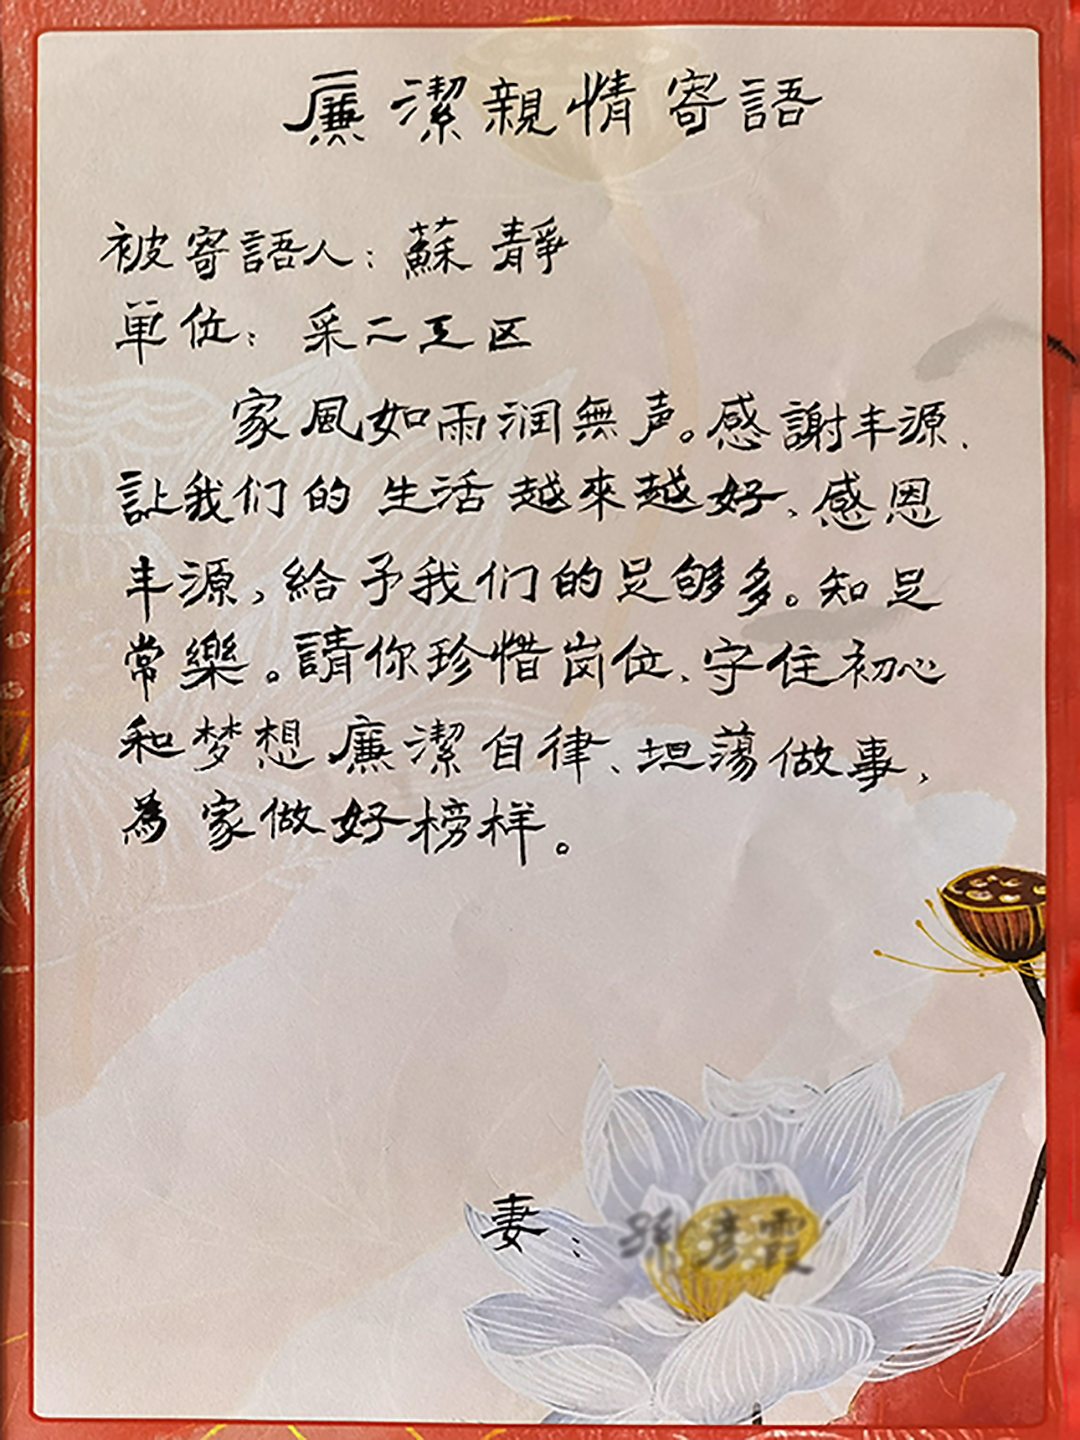 廉潔親情寄語
被寄語人：蘇靜
单位：采二工区
家風如雨润無声。感謝丰源、
讓我们的生活越來越好、感恩
丰源，給予我们的足够多。知足
常樂。請你珍惜岗位、守住初心
和梦想廉潔自律、坦蕩做事，
為家做好榜样。
妻：孫彦霞